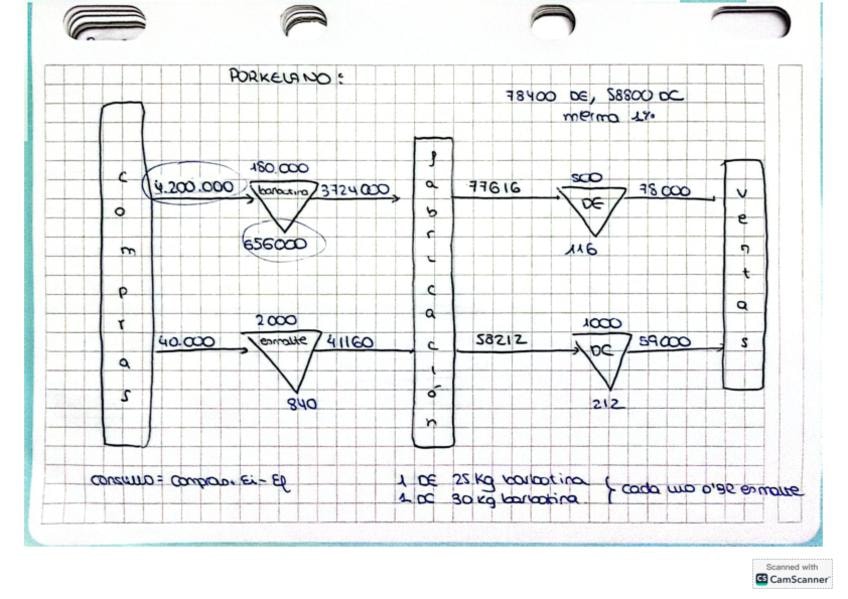 PORKELANO:
78400 DE, 58800 DC
merma 1%
compras
4.200.000
180.000
barbotina
3724000
656000
fabricación
77616
500
DE
78000
116
ventas
40.000
2000
esmalte
41160
840
58212
1000
DC
59000
212
consumo = compras + Ei - Ef
1 DE 25 Kg barbotina
1 DC 30 kg barbotina
} cada uno 0'3l esmalte
Scanned with
CS CamScanner